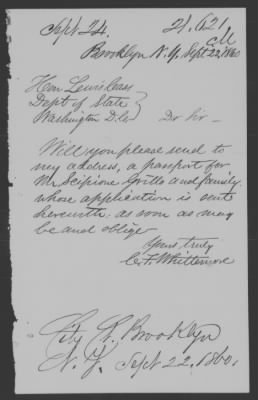 Sept 24. 21.621
Brooklyn N.Y. Sept 22, 1860
Hon Lewis Cass
Dept of State
Washington D.C.
Dr Sir -
Will you please send to
my address, a passport for
Mr Scipione Grillo and family.
whose application is sent
herewith. as soon as may
be and oblige
Yours truly
C. F. Whittemore
City Brooklyn
N.Y. Sept 22, 1860,